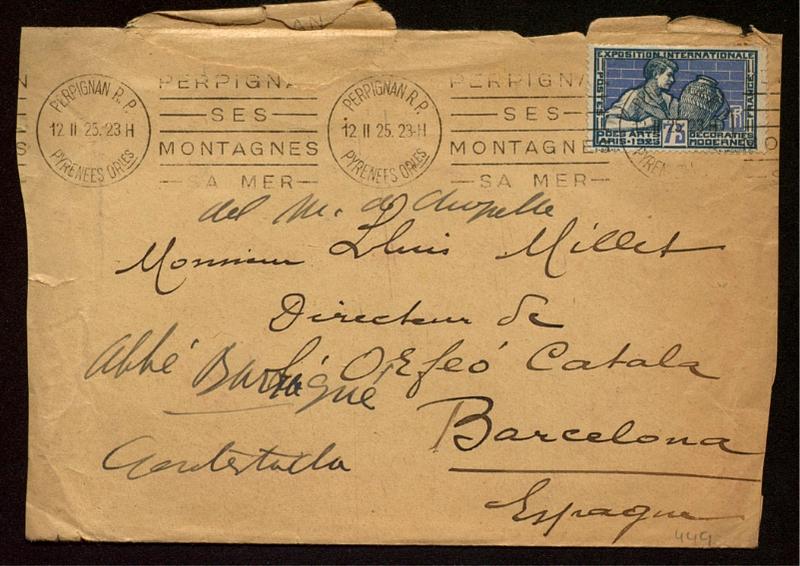 PERPIGNAN R.P.
12 II 25. 23 H
PYRENEES ORLES
PERPIGNAN
SES
MONTAGNES
SA MER
PERPIGNAN R.P.
12 II 25. 23-H
PYRENEES ORLES
PERPIGNA
SES
MONTAGNE
SA MER
EXPOSITION INTERNATIONALE
POSTES
FRANCE
RF
75
DES ARTS DECORATIFS
PARIS-1925 MODERNES
del M. de Chapelle
Monsieur Lluis Millet
Directeur de
l'Orfeó Catala
Abbé
Barcelona
Contestada
Espagne
449